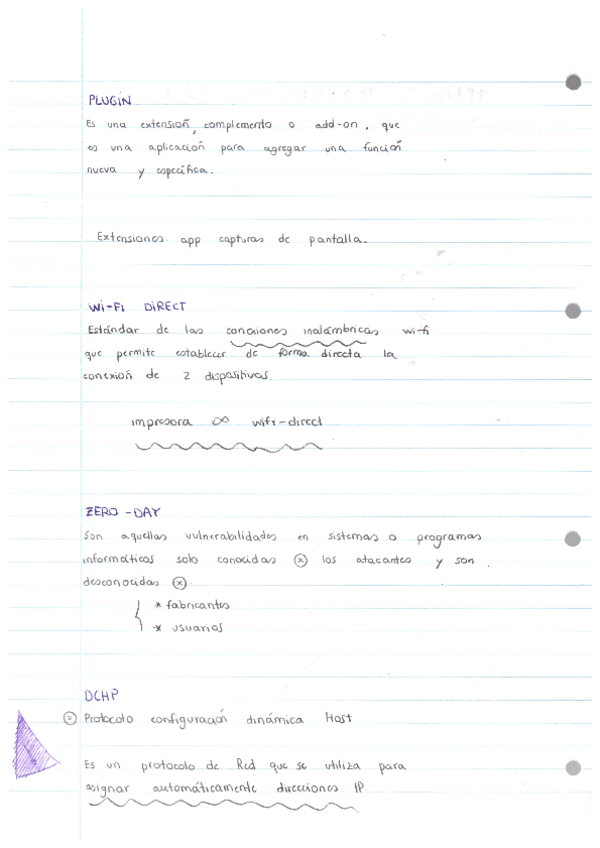 PLUGIN
Es una extensión, complemento o add-on, que
es una aplicación para agregar una función
nueva y específica.
Extensiones app capturas de pantalla.
Wi-Fi DIRECT
Estándar de las conexiones inalámbricas wifi
que permite establecer de forma directa la
conexión de 2 dispositivos.
impresora ∞ wifi-direct
ZERO-DAY
Son aquellas vulnerabilidades en sistemas o programas
informáticos solo conocidas ⓧ los atacantes y son
desconocidas ⓧ
* fabricantes
* usuarios
DCHP
Protocolo configuración dinámica Host
Es un protocolo de Red que se utiliza para
asignar automáticamente direcciones IP